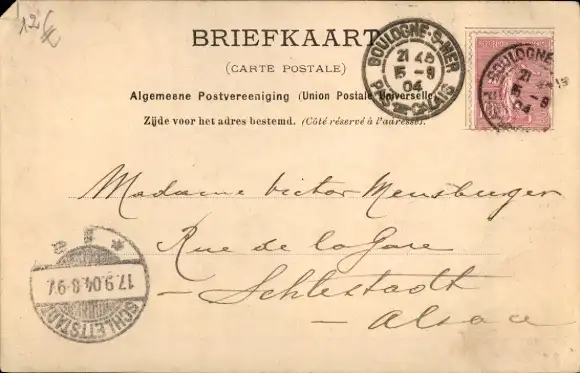 12€
BRIEFKAART
(CARTE POSTALE)
Algemeene Postvereeniging (Union Postale Universelle)
Zijde voor het adres bestemd. (Côté réservé à l'adresse.)
BOULOGNE-S-MER
21 45
15-9
04
PAS-DE-CALAIS
BOULOGNE
21
15-9
04
Madame Victor Mensburger
Rue de la Gare
Schlestadt
Alsace
SCHLETTSTADT
17.9.04.8-9V.
* a